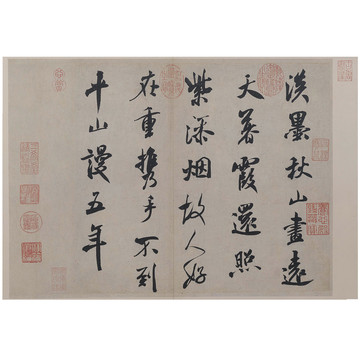 淡墨秋山畫遠
天暮霞還照
紫添烟故人好
在重携手不到
平山謾五年